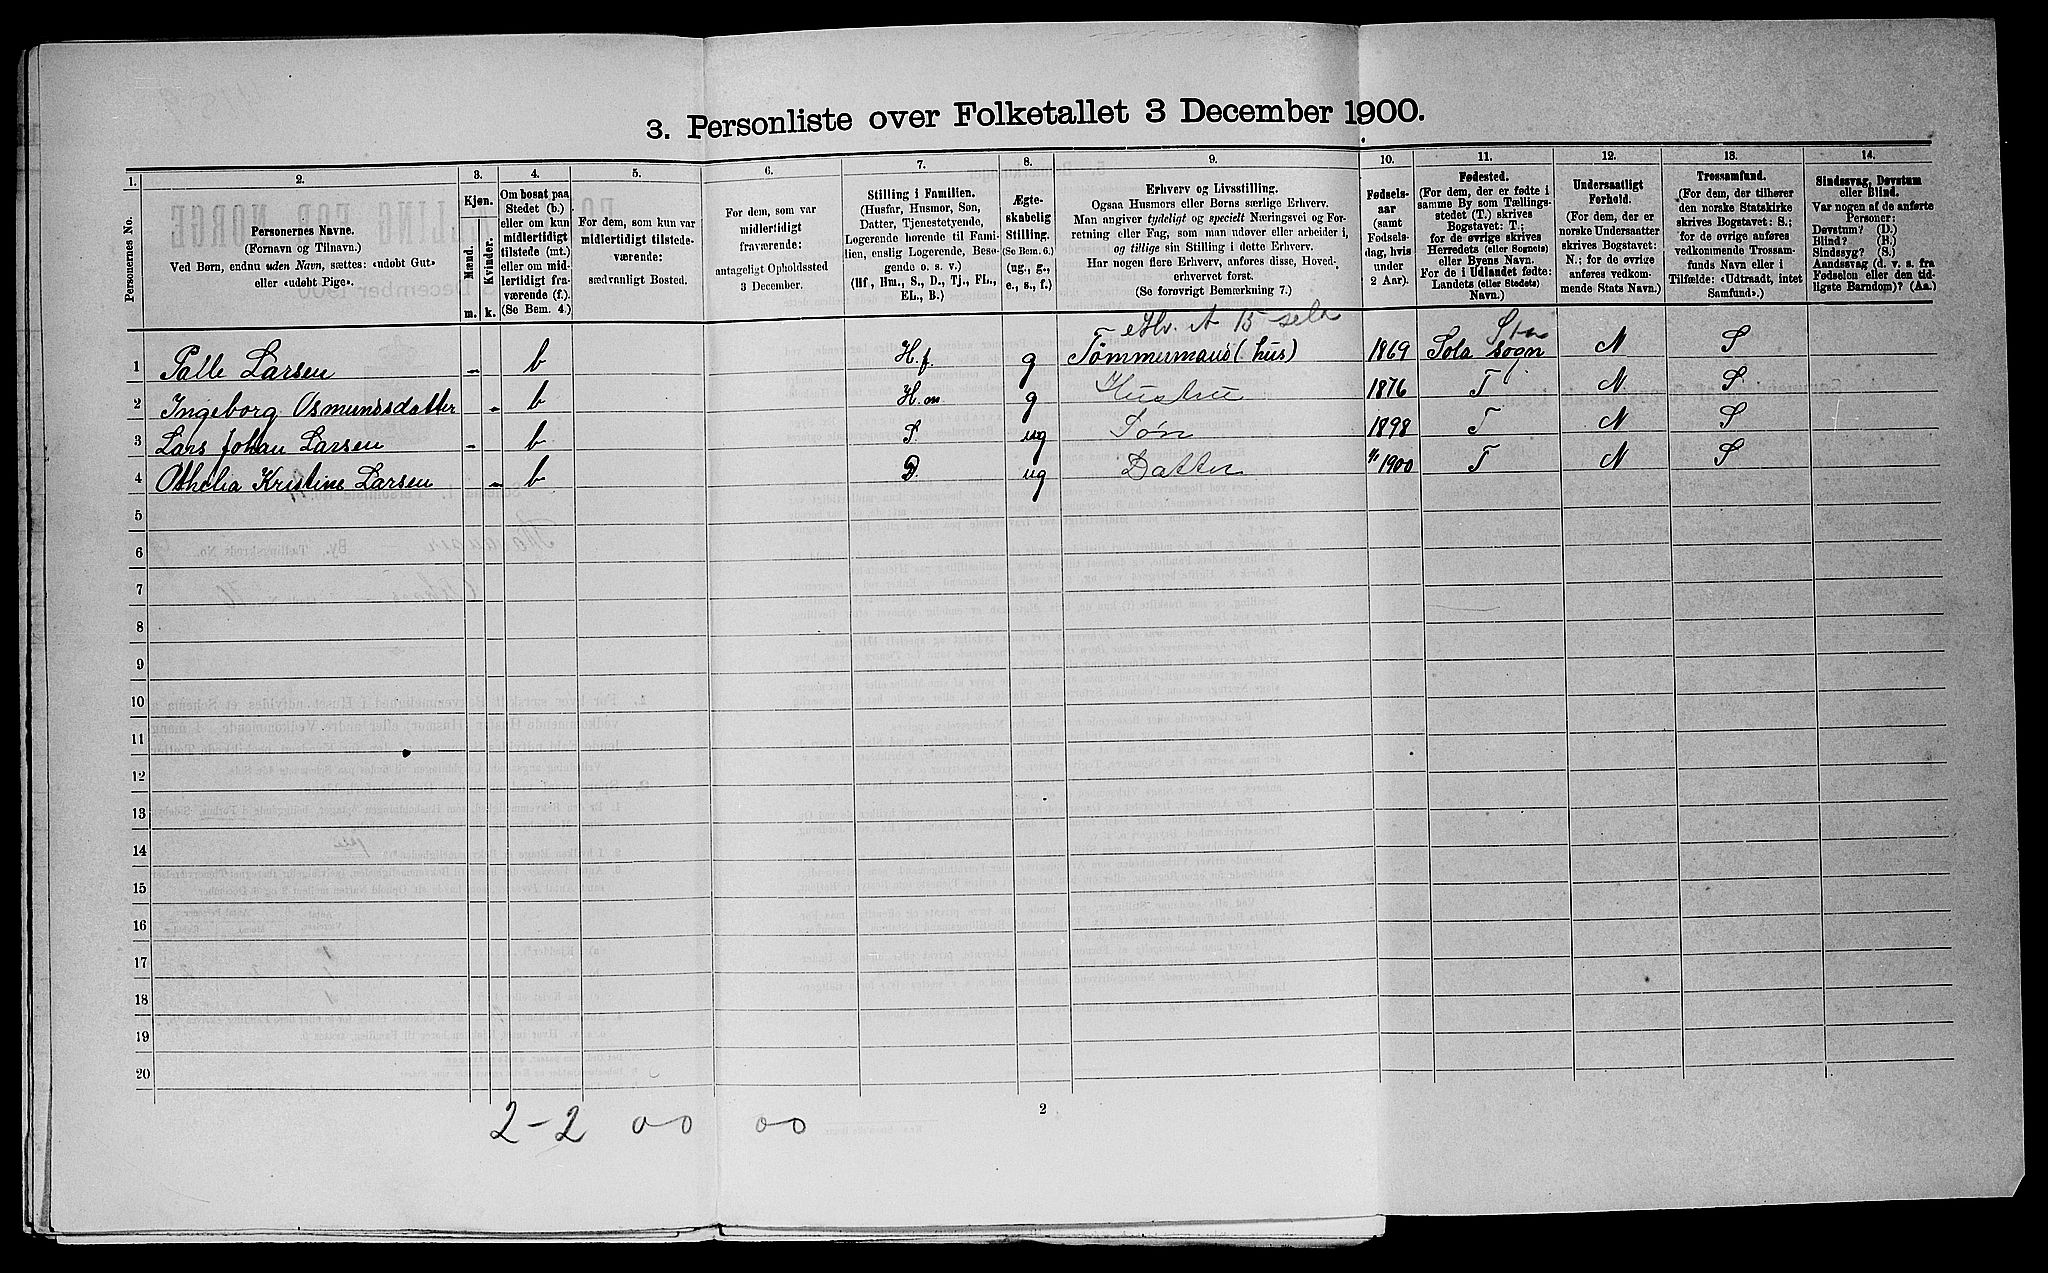 3. Personliste over Folketallet 3 December 1900.
1.
Personernes No.
2.
Personernes Navne.
(Fornavn og Tilnavn.)
Ved Børn, endnu uden Navn, sættes: «udøbt Gut»
eller «udøbt Pige».
3.
Kjøn.
Mænd.
Kvinder.
m. k.
4.
Om bosat paa
Stedet (b.)
eller om kun
midlertidigt
tilstede (mt.)
eller om mid-
lertidigt fra-
værende (f.).
(Se Bem. 4.)
5.
For dem, som kun var
midlertidigt tilstede-
værende:
sædvanligt Bosted.
6.
For dem, som var
midlertidigt
fraværende:
antageligt Opholdssted
3 December.
7.
Stilling i Familien.
(Husfar, Husmor, Søn,
Datter, Tjenestetyende,
Logerende hørende til Fami-
lien, enslig Logerende, Besø-
gende o. s. v.)
(Hf., Hm., S., D., Tj., FL.,
EL., B.)
8.
Ægte-
skabelig
Stilling.
(Se Bem. 6.)
(ug., g.,
e., s., f.)
9.
Erhverv og Livsstilling.
Ogsaa Husmors eller Børns særlige Erhverv.
Man angiver tydeligt og specielt Næringsvei og For-
retning eller Fag, som man udøver eller arbeider i,
og tillige sin Stilling i dette Erhverv.
Har nogen flere Erhverv, anføres disse, Hoved-
erhvervet først.
(Se forøvrigt Bemærkning 7.)
10.
Fødsels-
aar
(samt
Fødsels-
dag, hvis
under
2 Aar).
11.
Fødested.
(For dem, der er fødte i
samme By som Tællings-
stedet (T.) skrives
Bogstavet: T.;
for de øvrige skrives
Herredets (eller Sognets)
eller Byens Navn.
For de i Udlandet fødte:
Landets (eller Stedets)
Navn.)
12.
Undersaatligt
Forhold.
(For dem, der er
norske Undersaatter
skrives Bogstavet:
N.; for de øvrige
anføres vedkom-
mende Stats Navn.)
13.
Trossamfund.
(For dem, der tilhører
den norske Statskirke
skrives Bogstavet: S.;
for de øvrige anføres
vedkommende Trossam-
funds Navn eller i
Tilfælde: «Udtraadt, intet
Samfund».)
14.
Sindssvag, Døvstum
eller Blind.
Var nogen af de anførte
Personer:
Døvstum? (D.)
Blind? (B.)
Sindssyg? (S.)
Aandssvag (d. v. s. fra
Fødselen eller den tid-
ligste Barndom)? (Aa.)
1 Palle Larsen - b H.f. g Tømmermand (hus) 1869 Sola sogn N S
2 Ingeborg Osmundsdatter - b H.m g Hustru 1876 T N S
3 Lars Johan Larsen - b S. ug Søn 1898 T N S
4 Othelia Kristine Larsen - b D. ug Datter 1900 T N S
5
6
7
8
9
10
11
12
13
14
15
16
17
18
19
20
2-2 00 00
2